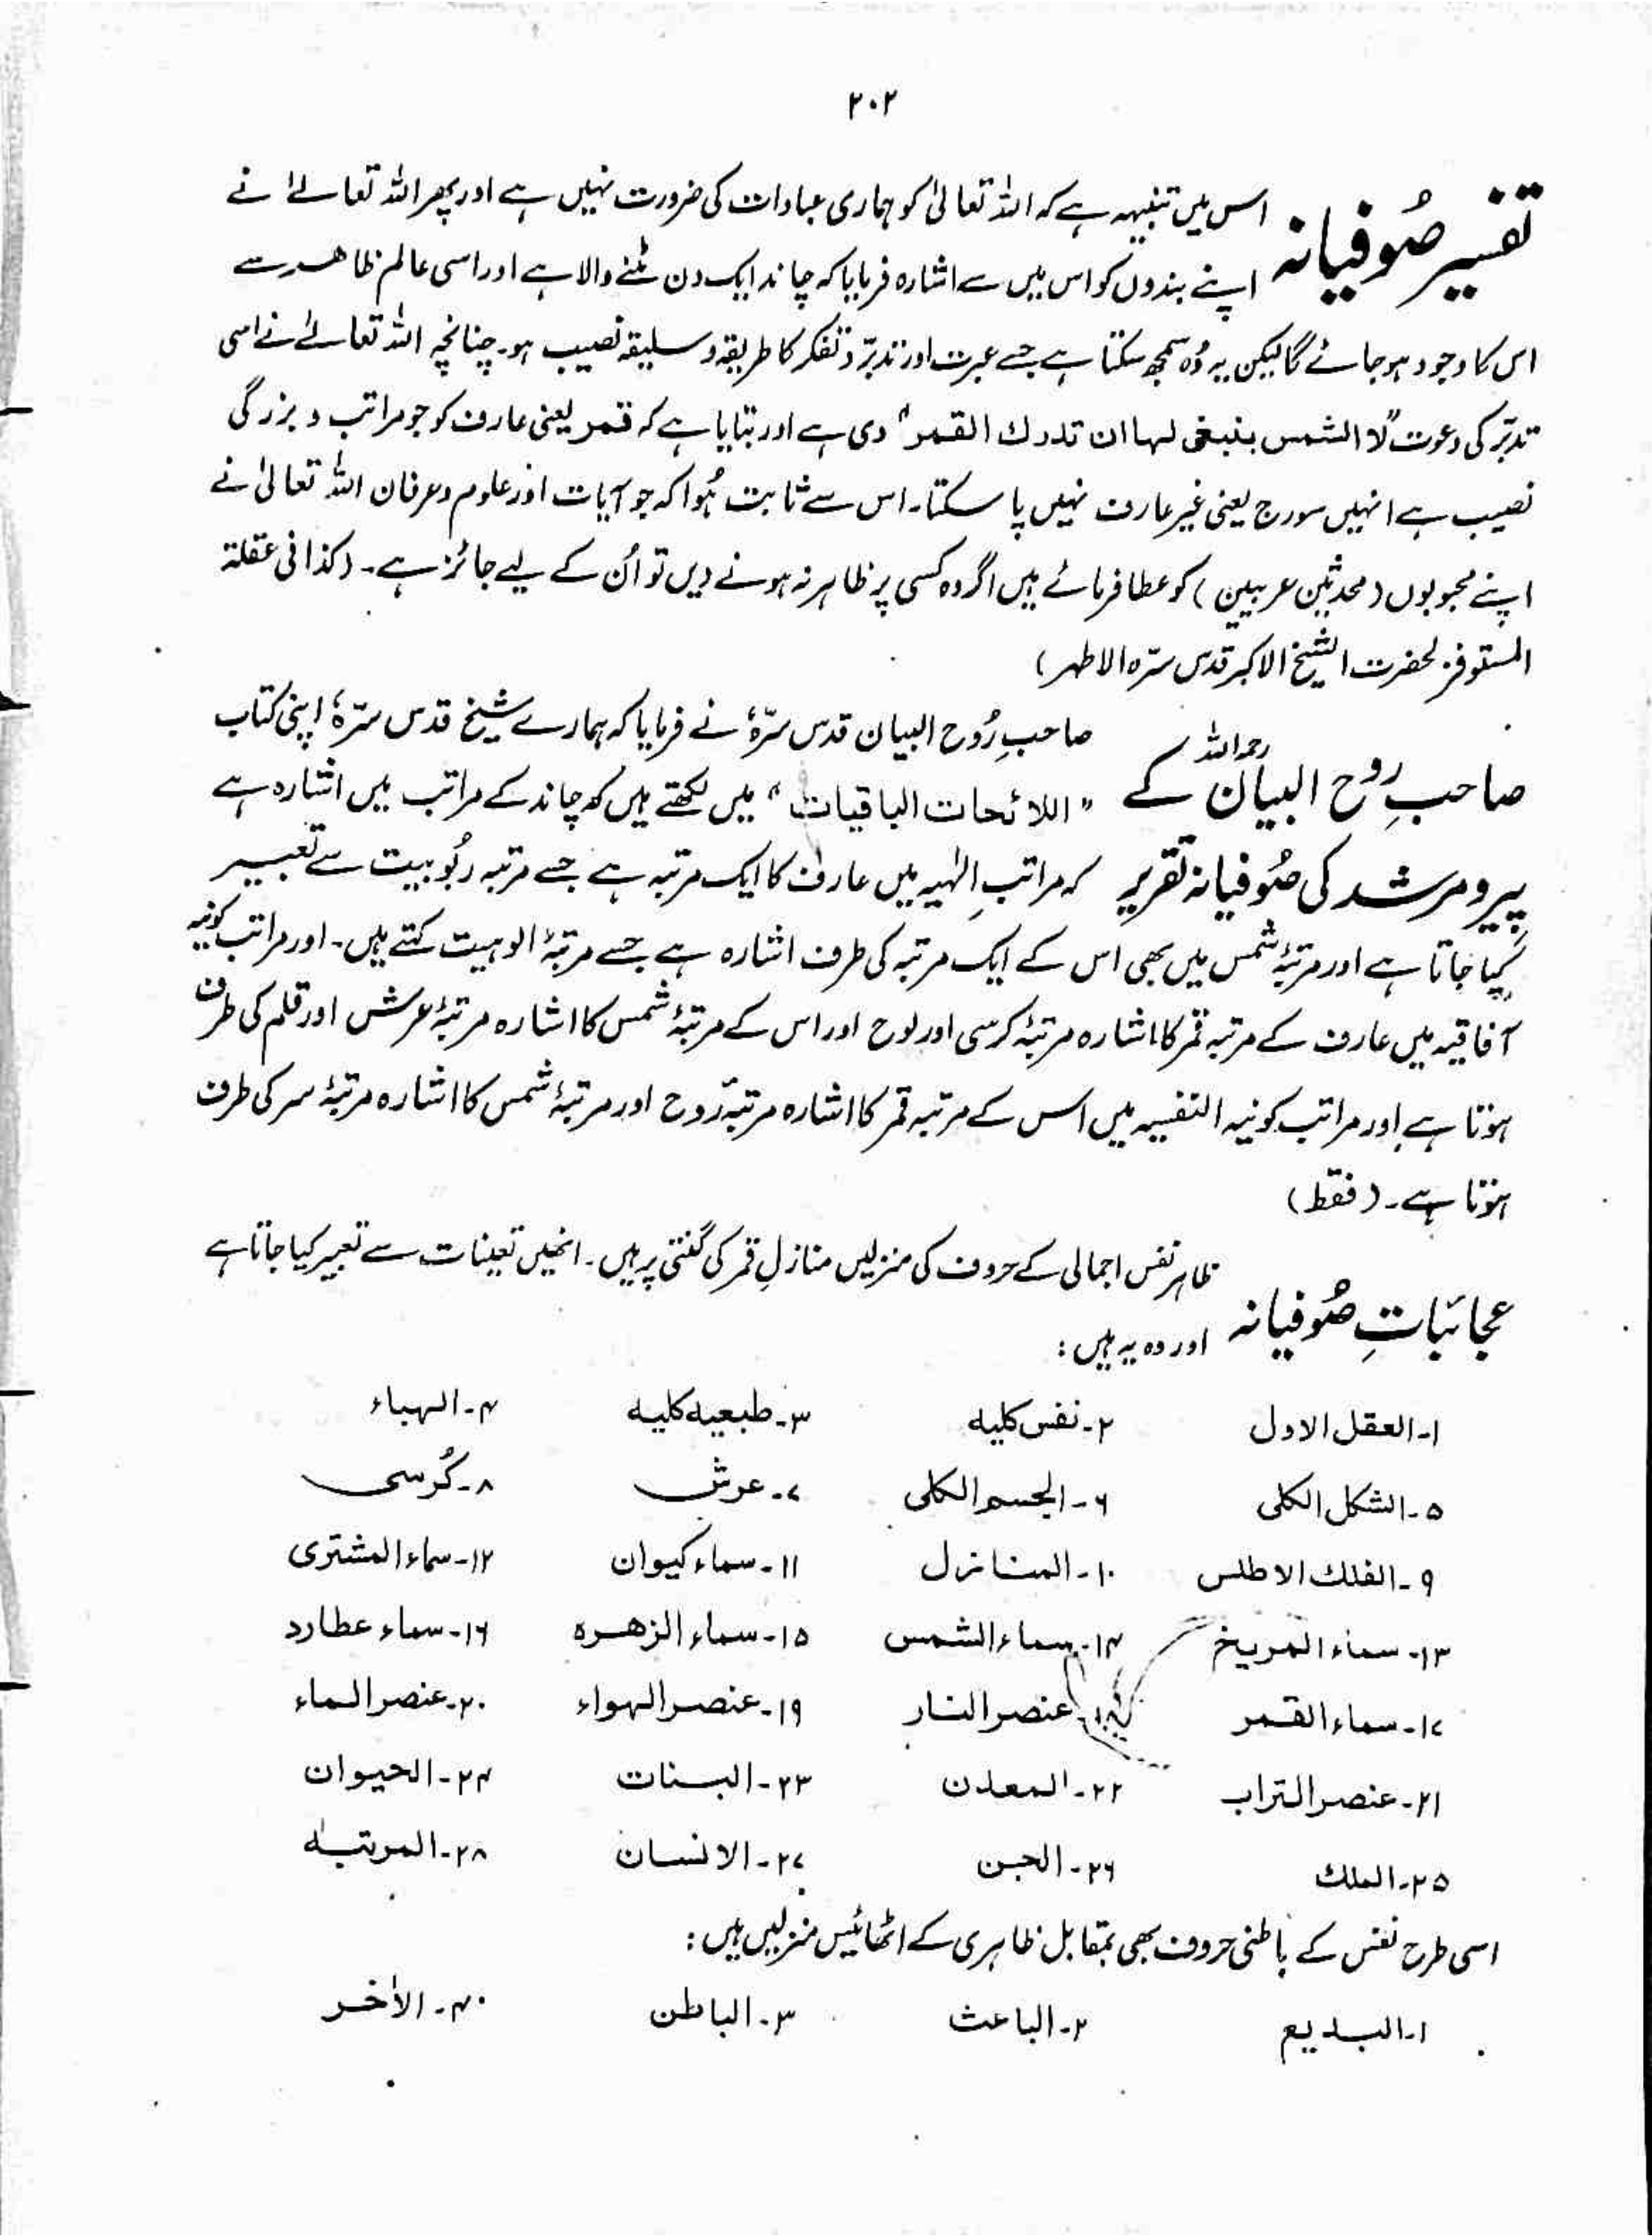 ۲۰۲
تفسیر صُوفیانہ
اس میں تنبیہہ ہے کہ اللہ تعالیٰ کو ہماری عبادات کی ضرورت نہیں ہے اور پھر اللہ تعالےٰ نے
اپنے بندوں کو اس میں سے اشارہ فرمایا کہ چاند ایک دن مٹنے والا ہے اور اسی عالم ظاہر سے
اس کا وجود ہو جائے گا لیکن یہ وُہ سمجھ سکتا ہے جسے عبرت اور تدبّر و تفکر کا طریقہ و سلیقہ نصیب ہو۔ چنانچہ اللہ تعالےٰ نے اسی
تدبّر کی دعوت "لا الشمس ینبغی لہا ان تدرك القمر" دی ہے اور بتایا ہے کہ قمر یعنی عارف کو جو مراتب و بزرگی
نصیب ہے انہیں سورج یعنی غیر عارف نہیں پا سکتا۔ اس سے ثابت ہُوا کہ جو آیات اور علوم و عرفان اللہ تعالیٰ نے
اپنے محبوبوں (محدثین عربیین) کو عطا فرمائے ہیں اگر وہ کسی پر ظاہر نہ ہونے دیں تو اُن کے لیے جائز ہے۔ (کذا فی عقلۃ
المستوفز لحضرت الشیخ الاکبر قدس سترہ الاطہر)
صاحبِ روح البیان رحمہ اللہ کے
صاحبِ رُوح البیان قدس سرّہٗ نے فرمایا کہ ہمارے شیخ قدس سرّہٗ اپنی کتاب
"اللائحات الباقیات" میں لکھتے ہیں کہ چاند کے مراتب میں اشارہ ہے
پیر و مرشد کی صُوفیانہ تقریر
کہ مراتبِ الٰہیہ میں عارف کا ایک مرتبہ ہے جسے مرتبہ ربُوبیت سے تعبیر
کیا جاتا ہے اور مرتبۂ شمس میں بھی اس کے ایک مرتبہ کی طرف اشارہ ہے جسے مرتبۂ الوہیت کہتے ہیں۔ اور مراتب کونیہ
آفاقیہ میں عارف کے مرتبہ قمر کا اشارہ مرتبۂ کرسی اور لوح اور اس کے مرتبۂ شمس کا اشارہ مرتبۂ عرش اور قلم کی طرف
ہوتا ہے اور مراتب کونیہ النفسیہ میں اس کے مرتبہ قمر کا اشارہ مرتبۂ رُوح اور مرتبۂ شمس کا اشارہ مرتبۂ سر کی طرف
ہوتا ہے۔ (فقط)
عجائباتِ صُوفیانہ
ظاہر نفس اجمالی کے حروف کی منزلیں منازلِ قمر کی گنتی پر ہیں۔ انھیں تعینات سے تعبیر کیا جاتا ہے
اور وہ یہ ہیں:
۱۔ العقل الاول ۲۔ نفس کلیه ۳۔ طبعیه کلیه ۴۔ الهباء
۵۔ الشکل الکلی ۶۔ الجسم الکلی ۷۔ عرش ۸۔ کُرسی
۹۔ الفلك الاطلس ۱۰۔ المنازل ۱۱۔ سماء کیوان ۱۲۔ سماء المشتری
۱۳۔ سماء المریخ ۱۴۔ سماء الشمس ۱۵۔ سماء الزهره ۱۶۔ سماء عطارد
۱۷۔ سماء القمر ۱۸۔ عنصر النار ۱۹۔ عنصر الهواء ۲۰۔ عنصر الماء
۲۱۔ عنصر التراب ۲۲۔ المعدن ۲۳۔ البنات ۲۴۔ الحیوان
۲۵۔ الملك ۲۶۔ الجن ۲۷۔ الانسان ۲۸۔ المرتبه
اسی طرح نفس کے باطنی حروف بھی بمقابل ظاہری کے اٹھائیس منزلیں ہیں:
۱۔ البدیع ۲۔ الباعث ۳۔ الباطن ۴۔ الاٰخر